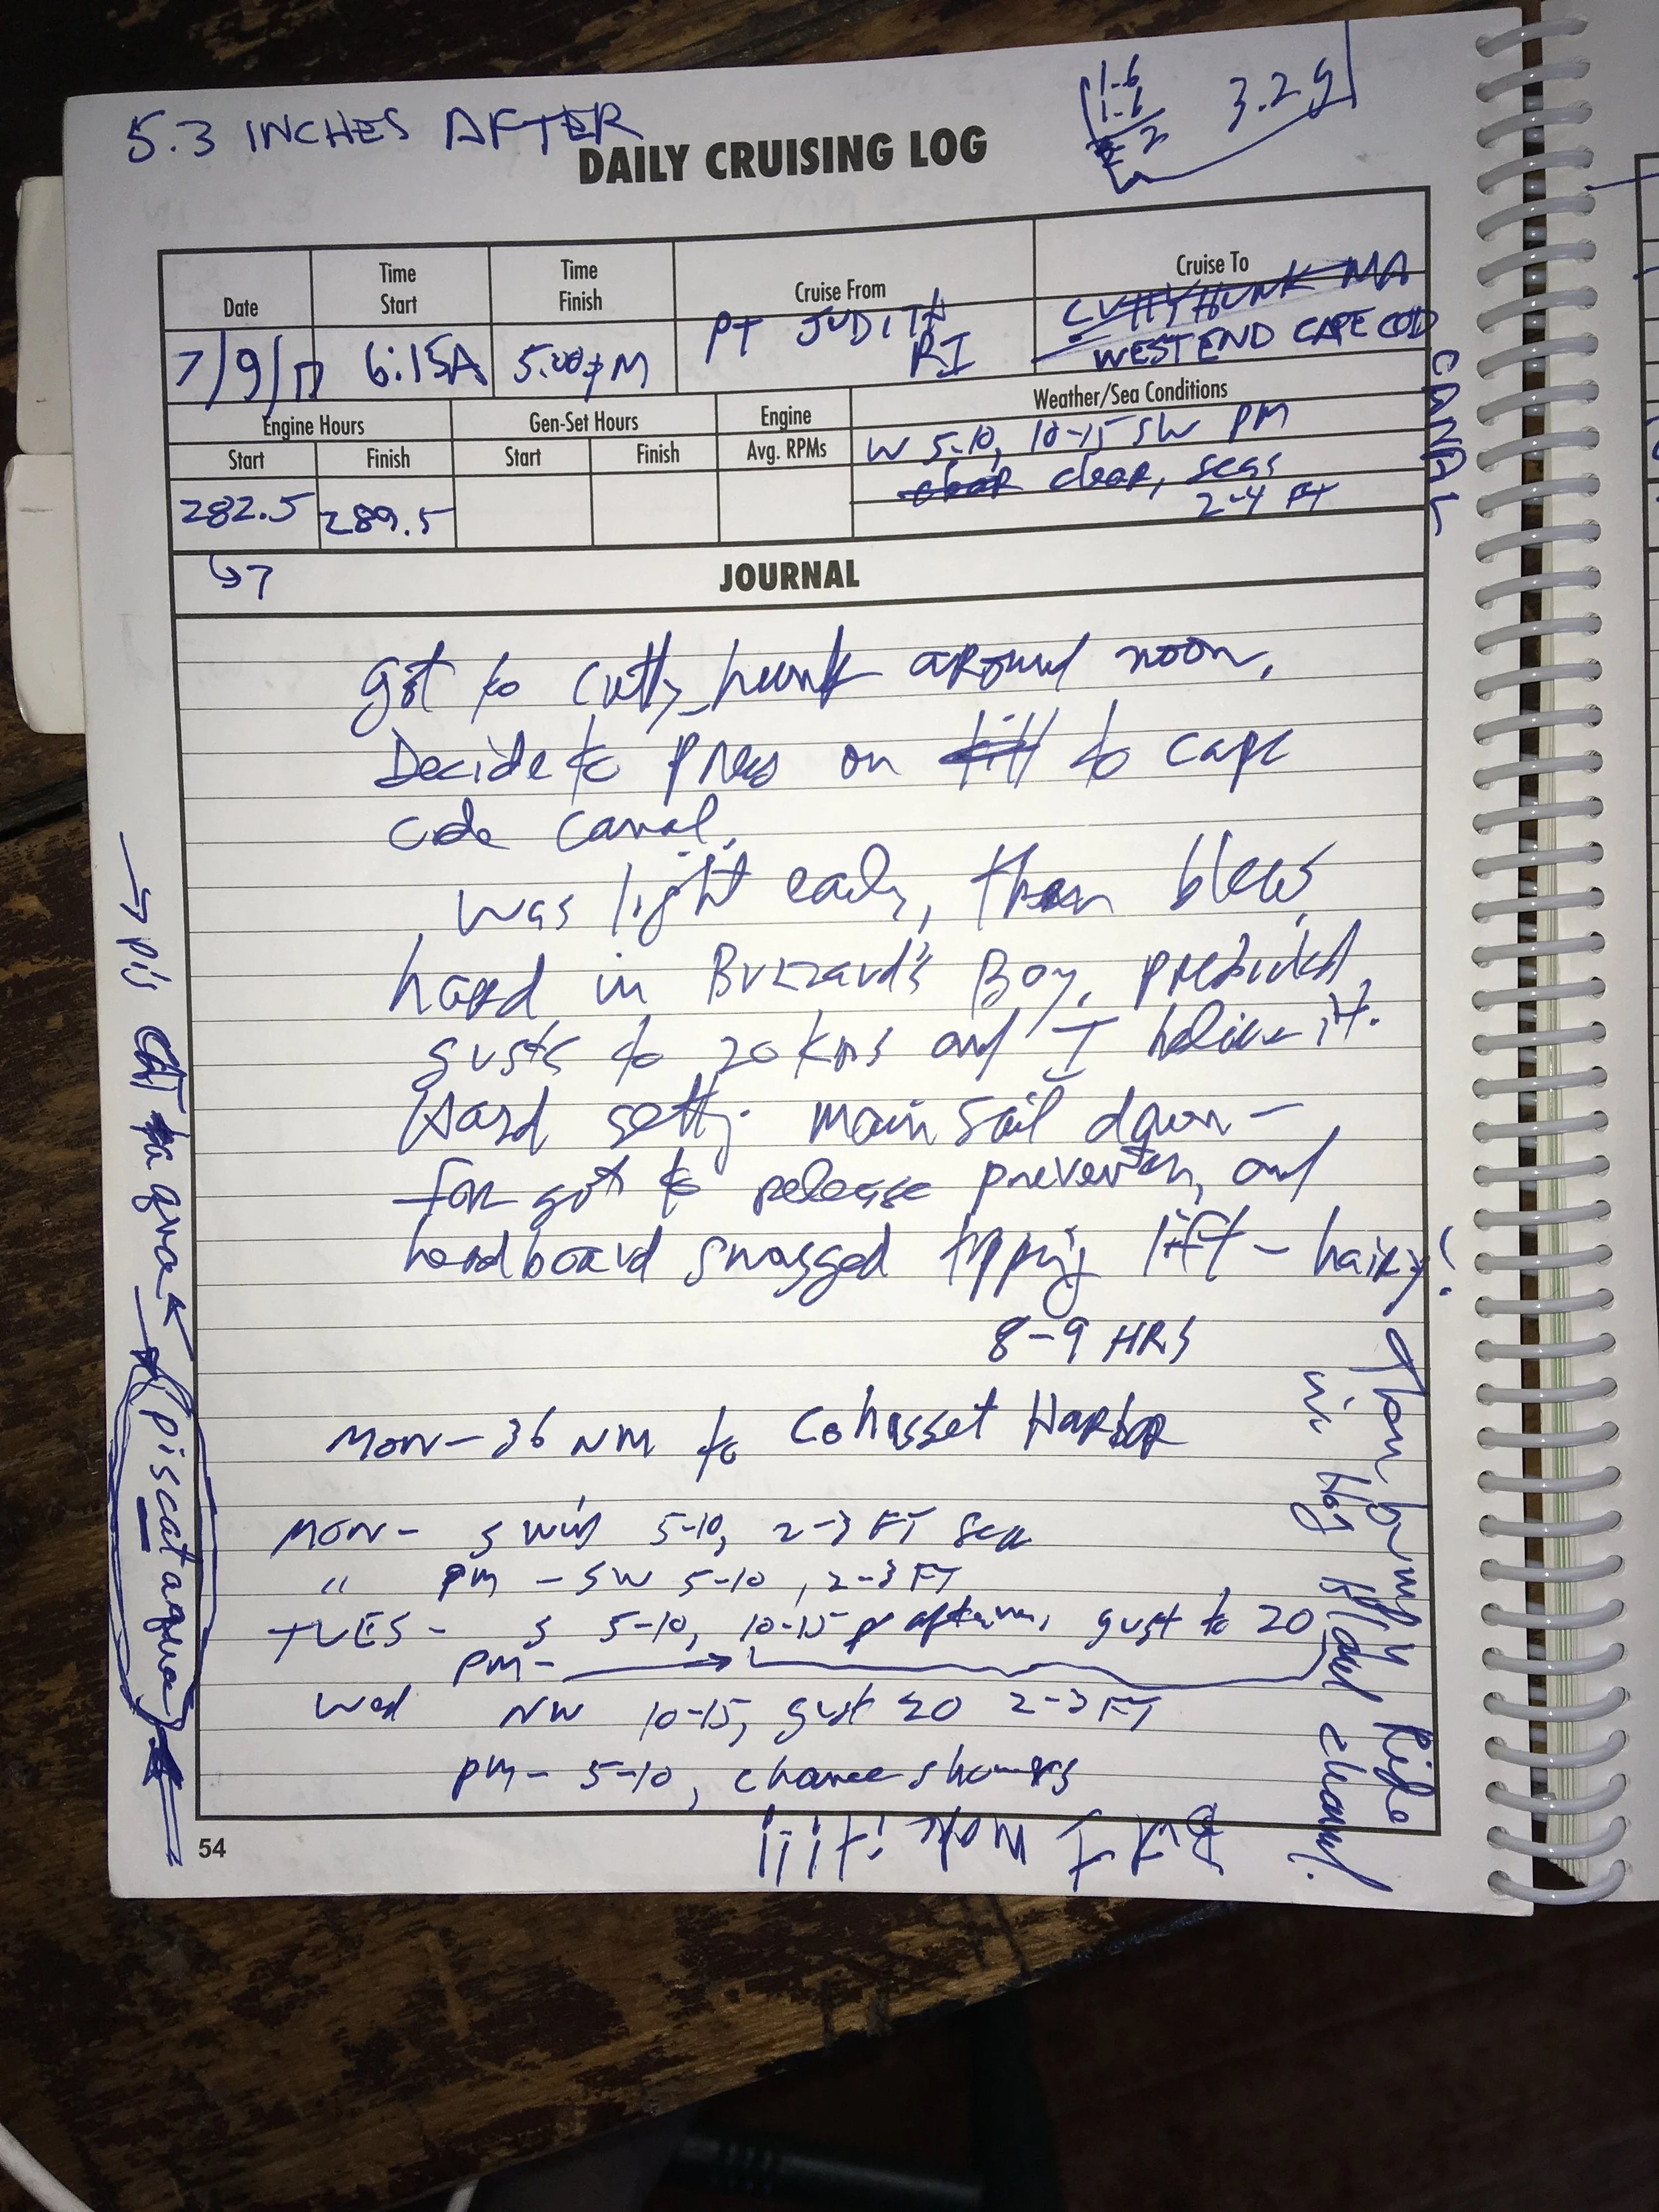 5.3 INCHES AFTER
1.6
1.6
3.2 g
DAILY CRUISING LOG
Date
Time Start
Time Finish
Cruise From
Cruise To
7/9/17
6:15A
5:00pM
PT JUDITH
RI
CUTTYHUNK MA
WEST END CAPE COD
CANAL
Engine Hours
Gen-Set Hours
Engine
Weather/Sea Conditions
Start
Finish
Start
Finish
Avg. RPMs
W 5-10, 10-15 SW PM
clear, seas
2-4 FT
282.5
289.5
↳7
JOURNAL
got to Cutty hunk around noon.
Decide to press on till to cape
code canal.
was light early, then blew
hard in Buzzard's Bay. predicted
gusts to 20 kns and I believe it.
Hard setting main sail down -
forgot to release preventer, and
headboard snagged topping lift - hairy!
8-9 HRS
MON - 36 NM to Cohasset Harbor
MON - S wind 5-10, 2-3 FT sea
" PM - SW 5-10, 2-3 FT
TUES - S 5-10, 10-15 afternoon, gust to 20
pm - →
Wed NW 10-15, gust 20 2-3 FT
pm - 5-10, chance showers
Then bumpy Ride
in Hog Island channel!
But I make it!!!!
→ pis CAT a qua
(piscataqua)
54